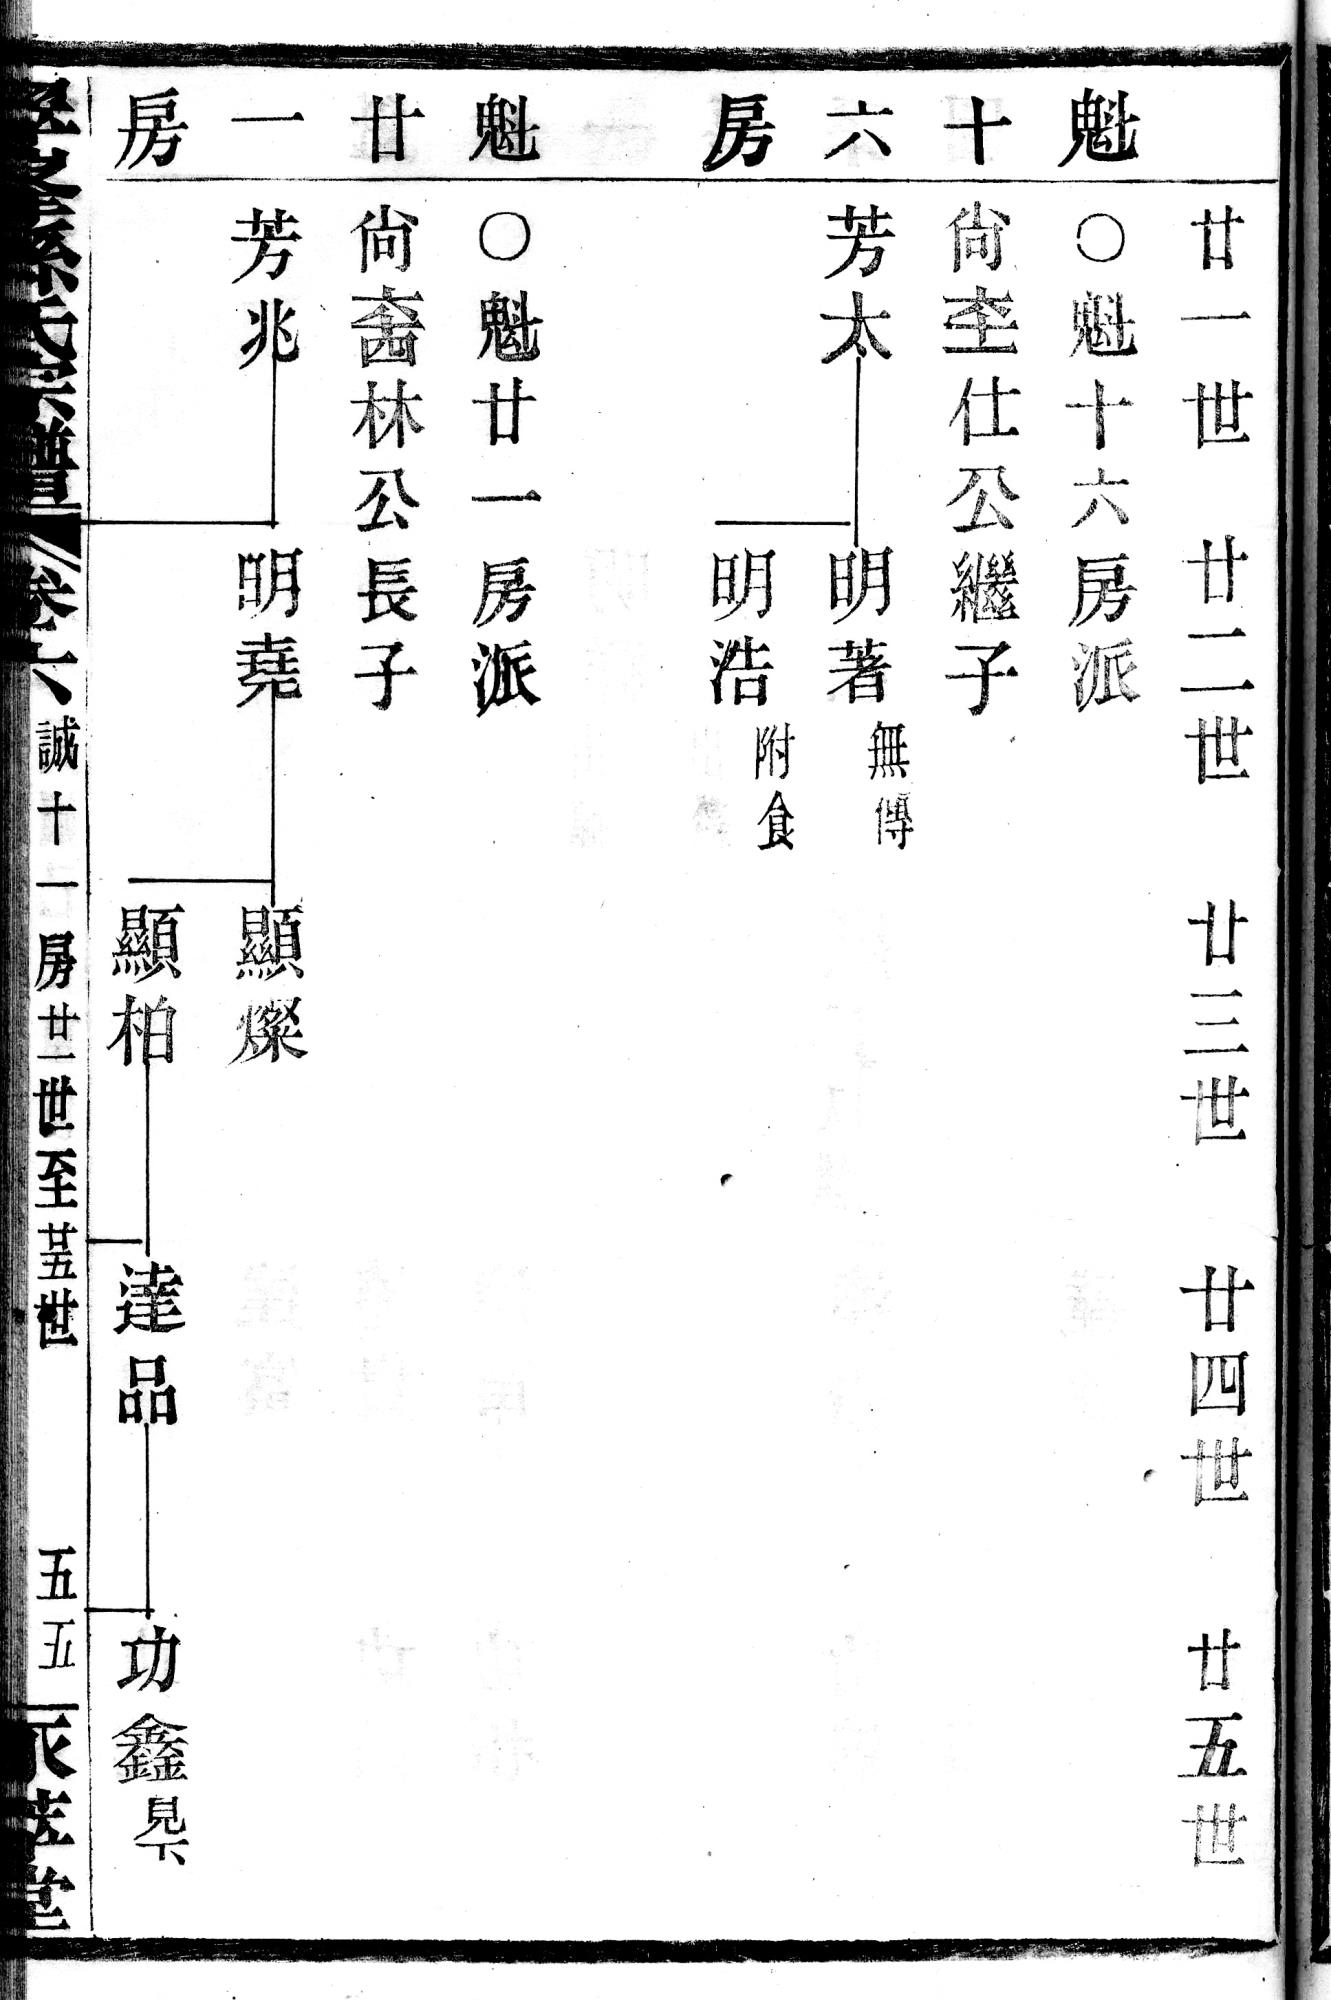 魁十六房
廿一世 廿二世 廿三世 廿四世 廿五世
○魁十六房派
尙坴仕公繼子
芳太 明著 無傳
明浩 附食
魁廿一房
○魁廿一房派
林公長子
芳兆 明堯 顯燦
顯柏 達品 功鑫 見下
孫氏宗譜 卷六 誠十一房廿一世至廿五世 五五 堂